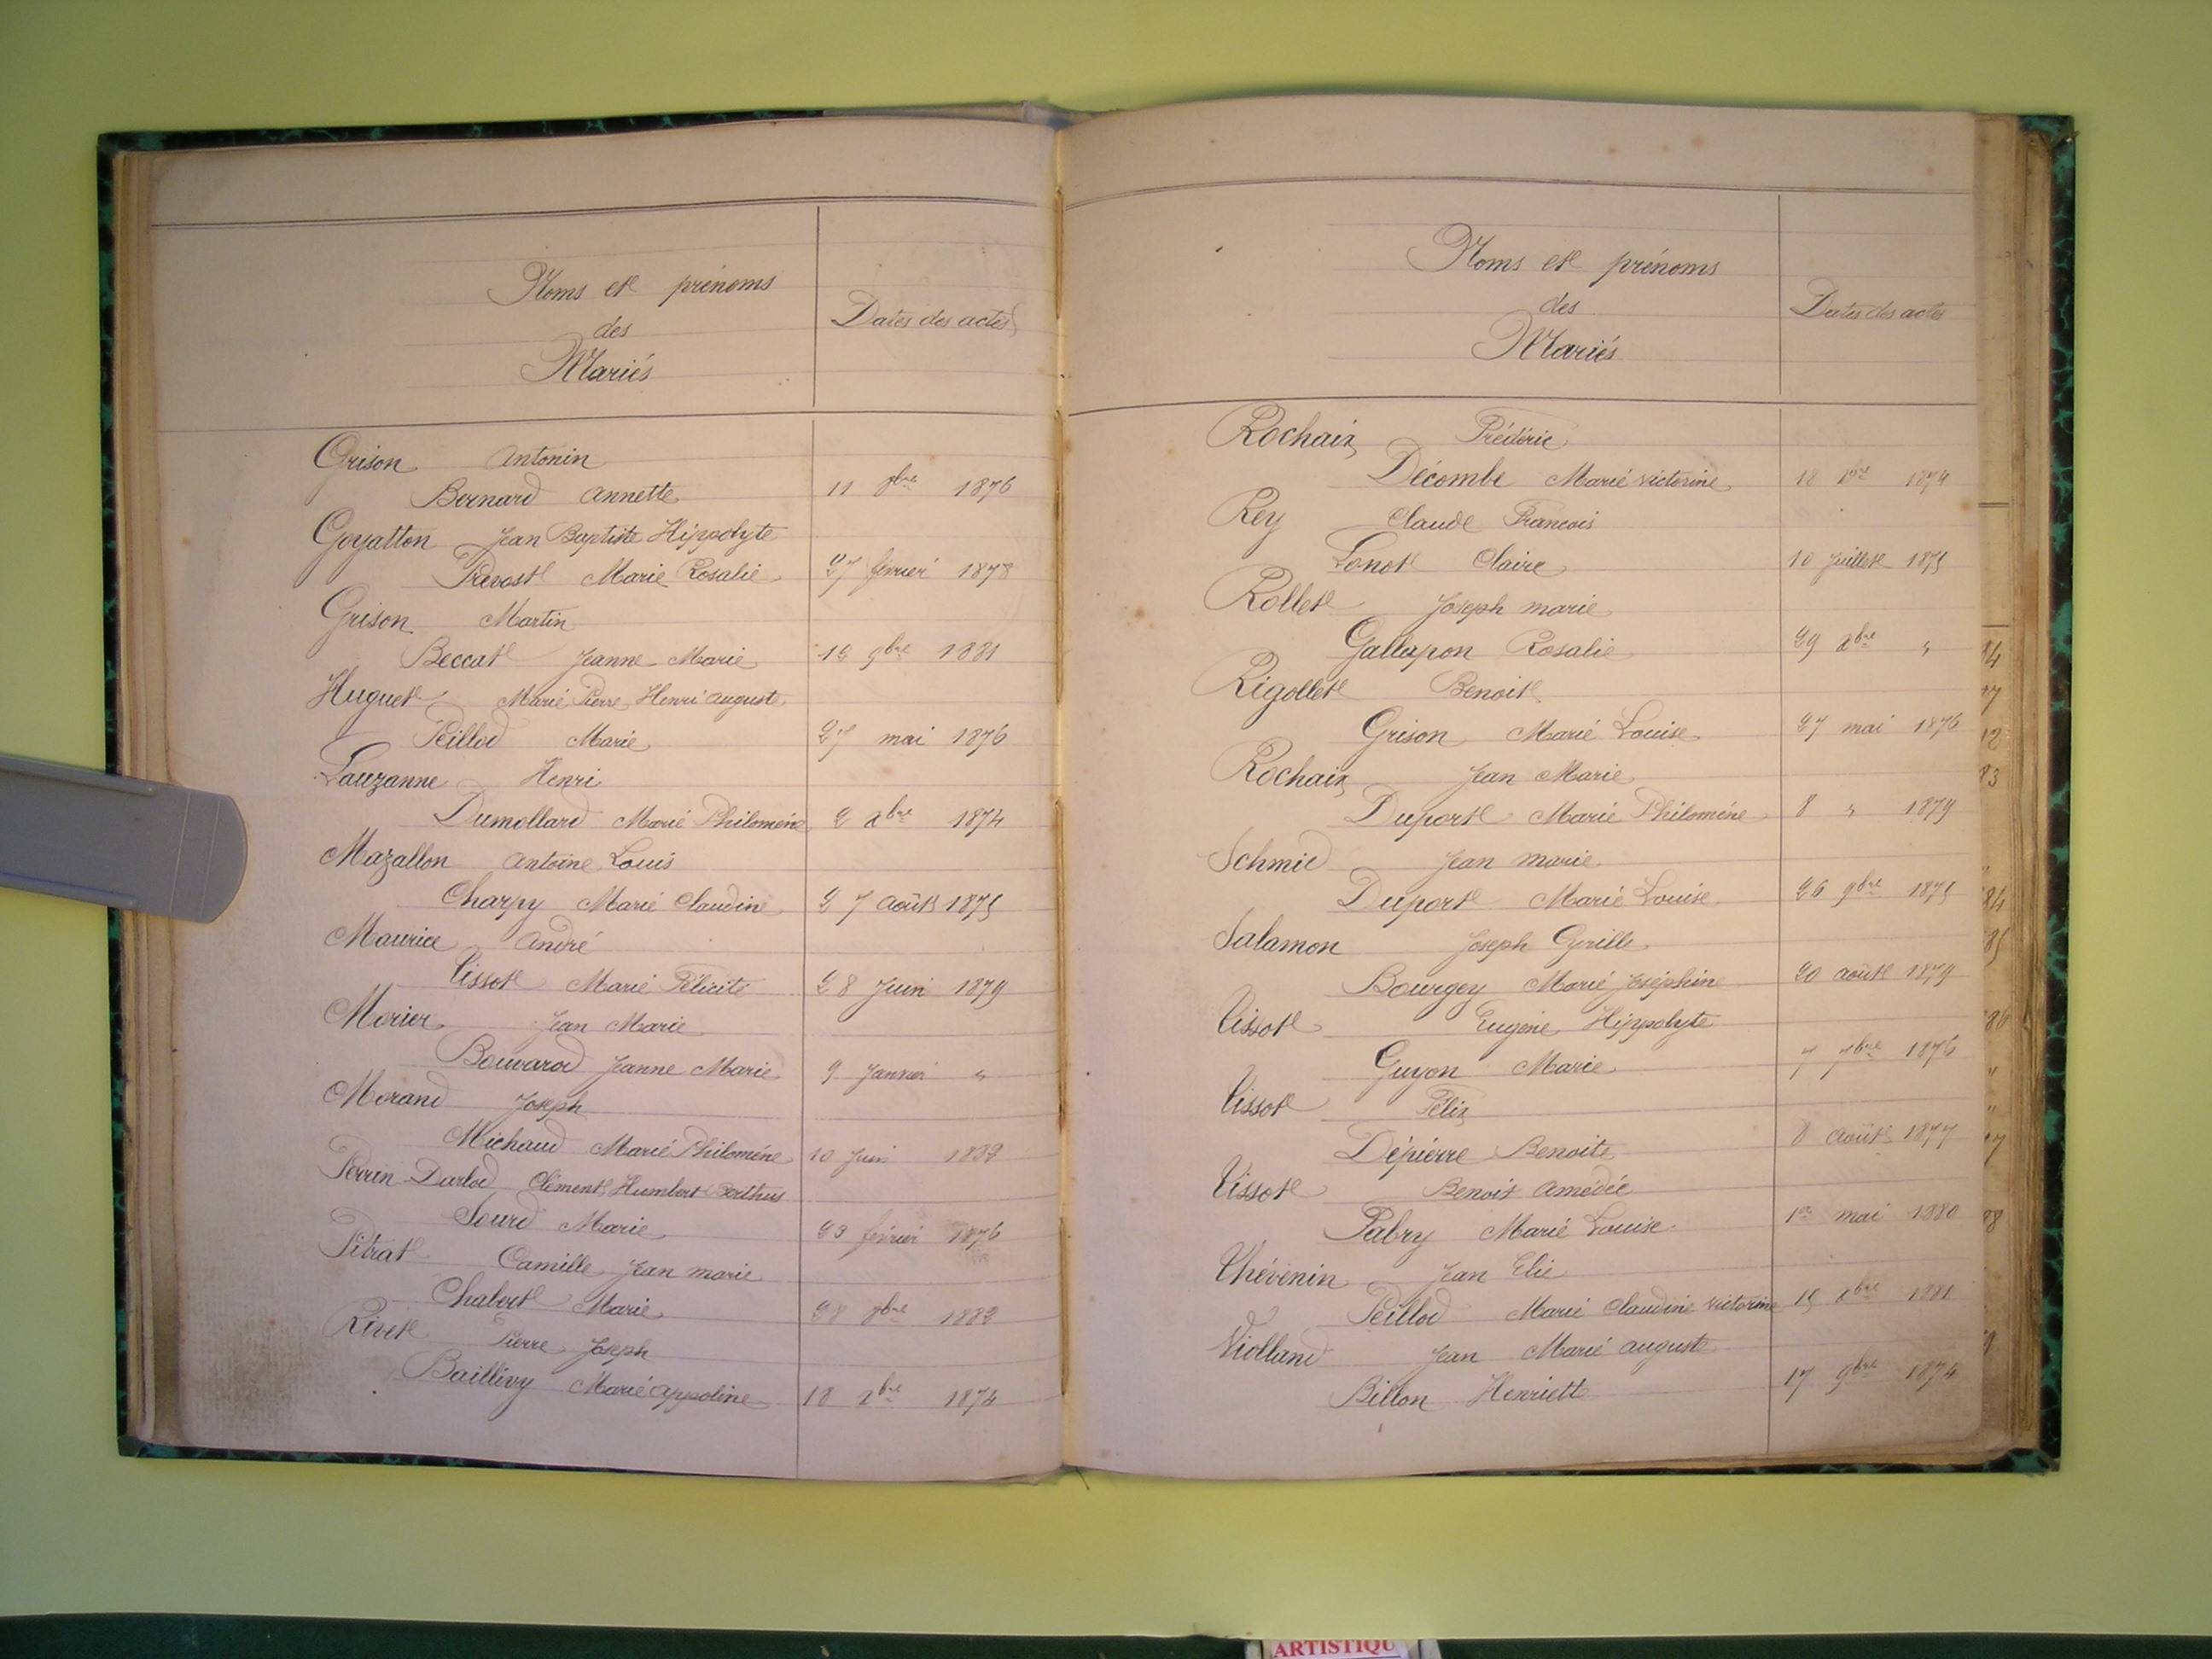 Noms et prénoms
des
Mariés
Dates des actes
Grison Antonin
Bernard Annette 11 8bre 1876
Goyatton Jean Baptiste Hippolyte
Prevost Marie Rosalie 27 février 1878
Grison Martin
Beccat Jeanne Marie 12 9bre 1881
Huguet Marie Pierre Henri Auguste
Peillod Marie 27 mai 1876
Lauzanne Henri
Dumollard Marie Philomène 2 Xbre 1874
Mazallon Antoine Louis
Charpy Marie Claudine 27 août 1875
Maurice André
Tissot Marie Félicité 28 Juin 1879
Morier Jean Marie
Bouvard Jeanne Marie 9 Janvier "
Morand Joseph
Michaud Marie Philomène 10 Juin 1882
Perrin-Darlod Clément Humbert Berthus
Sourd Marie 23 février 1876
Pitrat Camille Jean marie
Chabert Marie 28 8bre 1882
Rivet Pierre Joseph
Baillivy Marie Appoline 18 Xbre 1874
Noms et prénoms
des
Mariés
Dates des actes
Rochaix Frédéric
Décombe Marie victorine 18 1874
Rey Claude Francois
Lonot Claire 10 Juillet 1875
Rollet Joseph marie
Gallapon Rosalie 29 Xbre "
Rigollet Benoit
Grison Marie Louise 27 mai 1876
Rochaix Jean Marie
Duport Marie Philomène 8 " 1879
Schmid Jean marie
Duport Marie Louise 26 9bre 1875
Salamon Joseph Cyrille
Bourgey Marie Joséphine 20 août 1879
Tissot Eugène Hippolyte
Guyon Marie 7 7bre 1876
Tissot Félix
Dépierre Benoite 8 août 1877
Tissot Benoit Amédée
Fabry Marie Louise 1er mai 1880
Thévenin Jean Elie
Peillod Marie Claudine victorine 15 Xbre 1881
Violland Jean Marie auguste
Billon Henriette 17 9bre 1874
ARTISTIQU